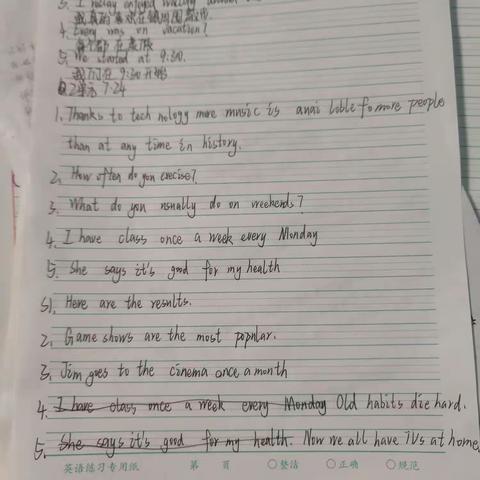 3. I really enjoyed walking around
4. Every was on vacation?
5. We started at 9:30.
我们在 9:30 开始
7.24
1. Thanks to tech nology more music is avai lable fo more people
than at any time in history.
2. How often do you execise?
3. What do you usually do on weekends?
4. I have class once a week every Monday
5. She says it's good for my health
S1. Here are the results.
2. Game shows are the most popular.
3. Jim goes to the cinema once a month
4. I have class once a week every Monday Old habits die hard.
5. She says it's good for my health. Now we all have TVs at home.
英语练习专用纸 第 页 ○整洁 ○正确 ○规范